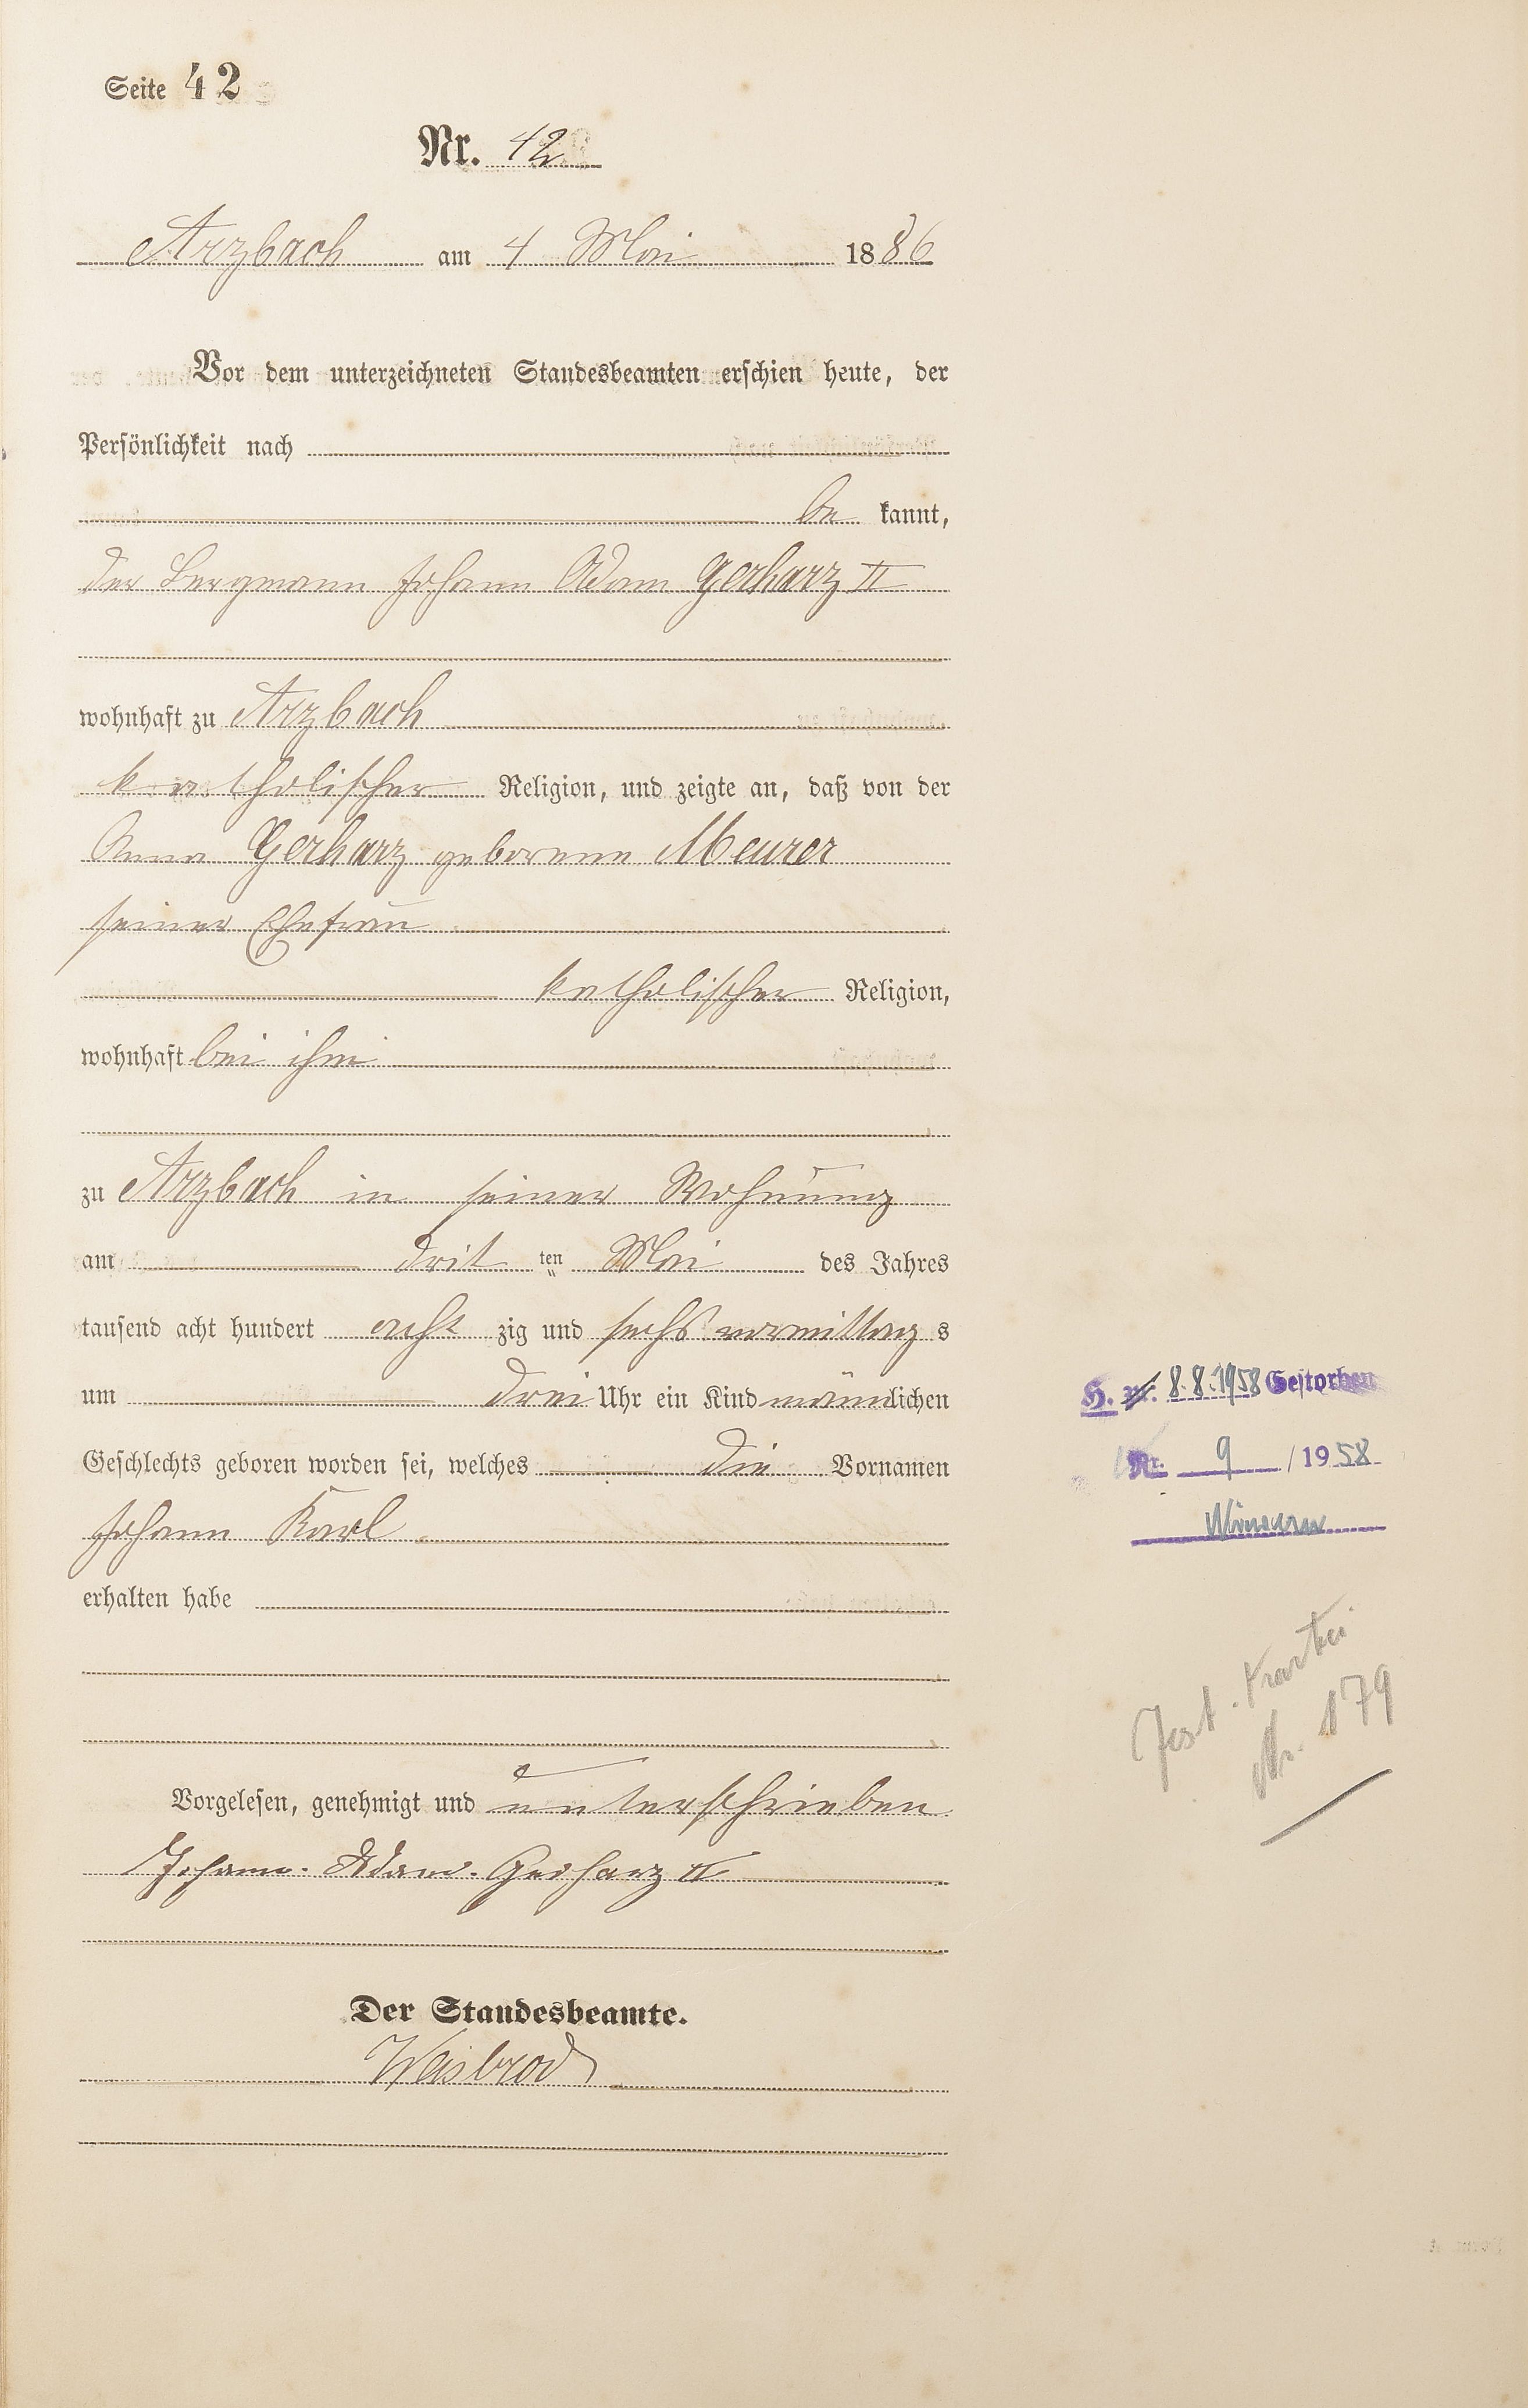 Seite 42
Nr. 42
Arzbach am 4 Mai 1886
Vor dem unterzeichneten Standesbeamten erschien heute, der
Persönlichkeit nach
be kannt,
der Bergmann Johann Adam Gerharz II
wohnhaft zu Arzbach
katholischer Religion, und zeigte an, daß von der
Anna Gerharz geborene Meurer
seiner Ehefrau
katholischer Religion,
wohnhaft bei ihm
zu Arzbach in seiner Wohnung
am drit ten Mai des Jahres
tausend acht hundert acht zig und sechs vormittag s
um drei Uhr ein Kind männlichen
Geschlechts geboren worden sei, welches die Vornamen
Johann Karl
erhalten habe
Vorgelesen, genehmigt und unterschrieben
Johann. Adam. Gerharz II
Der Standesbeamte.
Weisbrod
H. 8.8.1958 Gestorben
Nr. 9 / 1958
Nr. 179